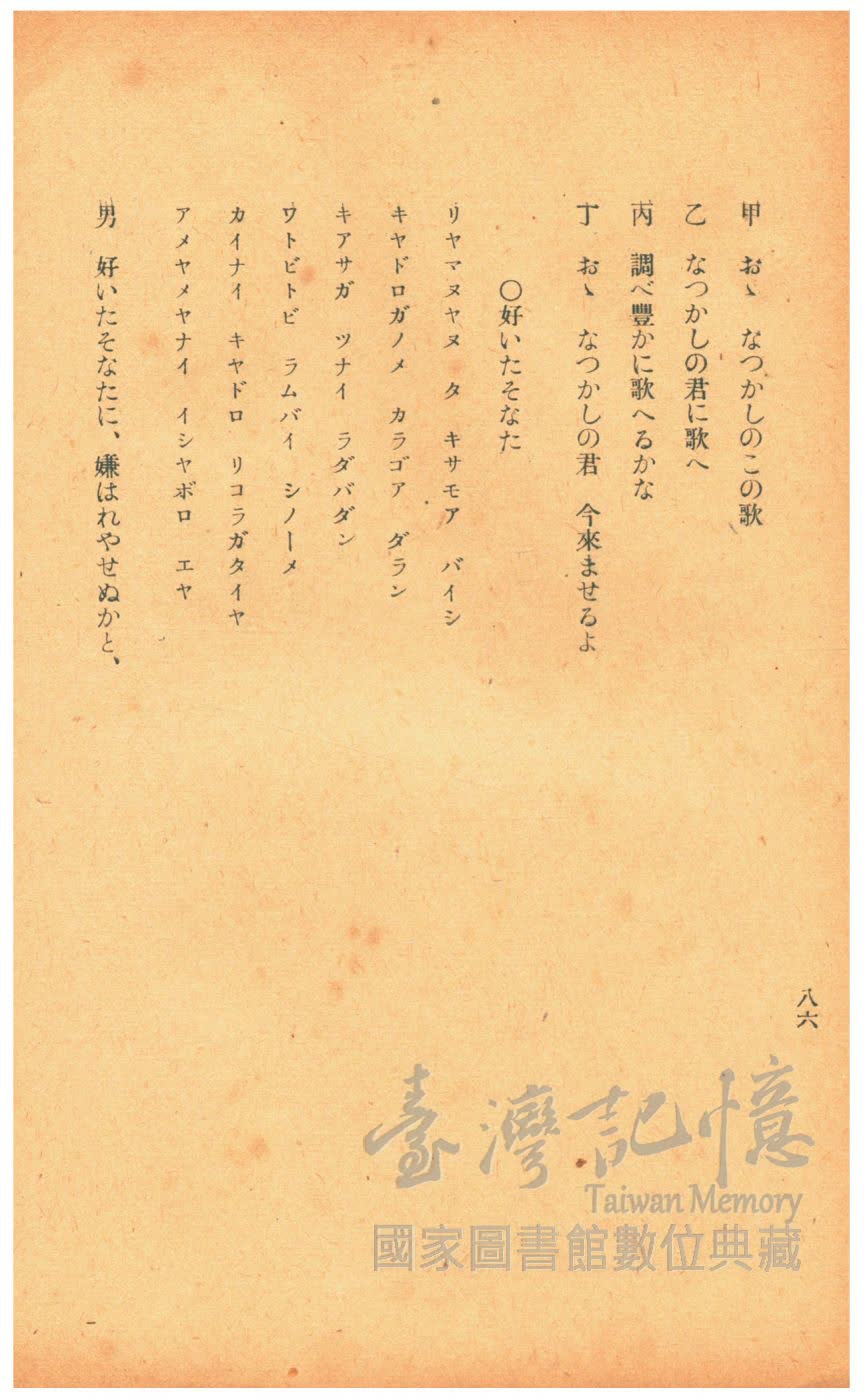 甲　おゝ　なつかしのこの歌
乙　なつかしの君に歌へ
丙　調べ豐かに歌へるかな
丁　おゝ　なつかしの君　今來ませるよ
〇好いたそなた
リヤマヌヤヌ　タ　キサモア　バイシ
キヤドロガノメ　カラゴア　ダラン
キアサガ　ツナイ　ラダバダン
ワトビトビ　ラムバイ　シノーメ
カイナイ　キヤドロ　リコラガタイヤ
アメヤメヤナイ　イシヤボロ　エヤ
男　好いたそなたに、嫌はれやせぬかと、
八六
臺灣記憶
Taiwan Memory
國家圖書館數位典藏